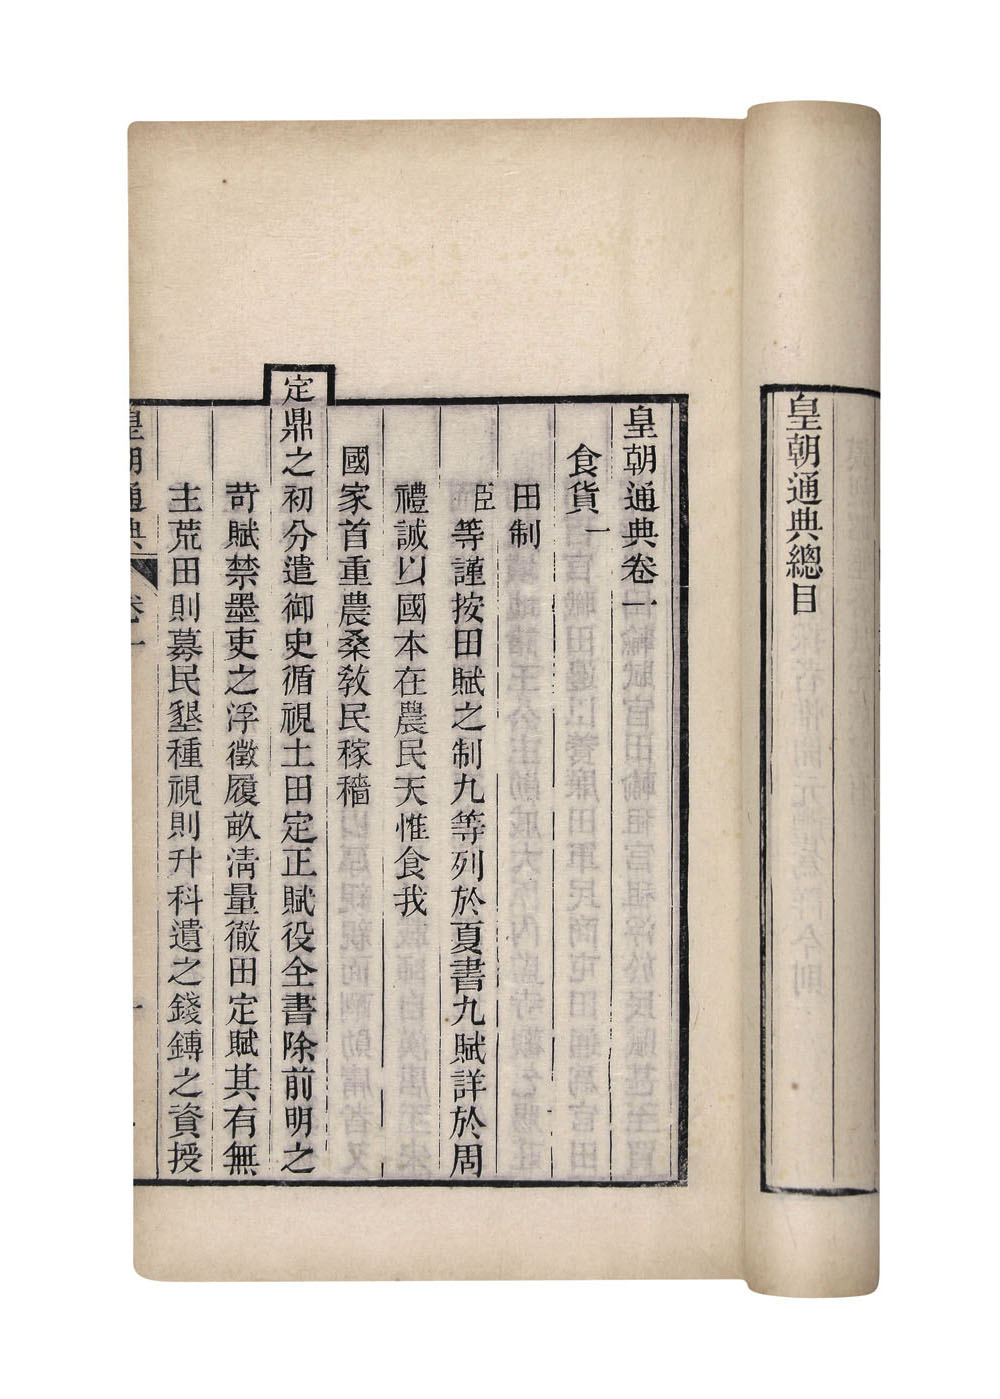 皇朝通典總目
皇朝通典卷一
食貨一
田制
臣等謹按田賦之制九等列於夏書九賦詳於周
禮誠以國本在農民天惟食我
國家首重農桑敎民稼穡
定鼎之初分遣御史循視土田定正賦役全書除前明之
苛賦禁墨吏之浮徵履畝淸量徹田定賦其有無
主荒田則募民墾種視則升科遺之錢鎛之資授
皇朝通典 卷一 一